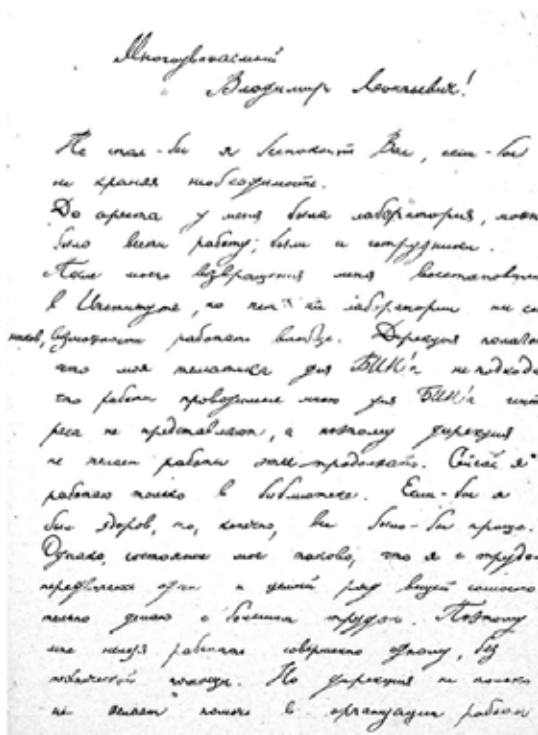 Многоуважаемый
Владимир Леонтьевич!
Не стал-бы я беспокоить Вас, если-бы
не крайняя необходимость.
До ареста у меня была лаборатория, можно
было вести работу; были и сотрудники.
После моего возвращения меня восстановили
в Институте, но нет ни лаборатории ни со
ников, возможности работать вообще. Дирекция полага
что моя тематика для БИН'а не подходи
что работы проводимые мною для БИН'а инте
реса не представляют, а поэтому дирекция
не желает работы эти продолжать. Сейчас я
работаю только в библиотеке. Если-бы я
был здоров, то, конечно, все было-бы проще.
Однако, состояние мое таково, что я с трудом
передвигаюсь один и целый ряд вещей самосто
тельно делаю с большим трудом. Поэтому
мне нельзя работать совершенно одному, без
помощи. Но дирекция не только
не желает помочь в организации работы